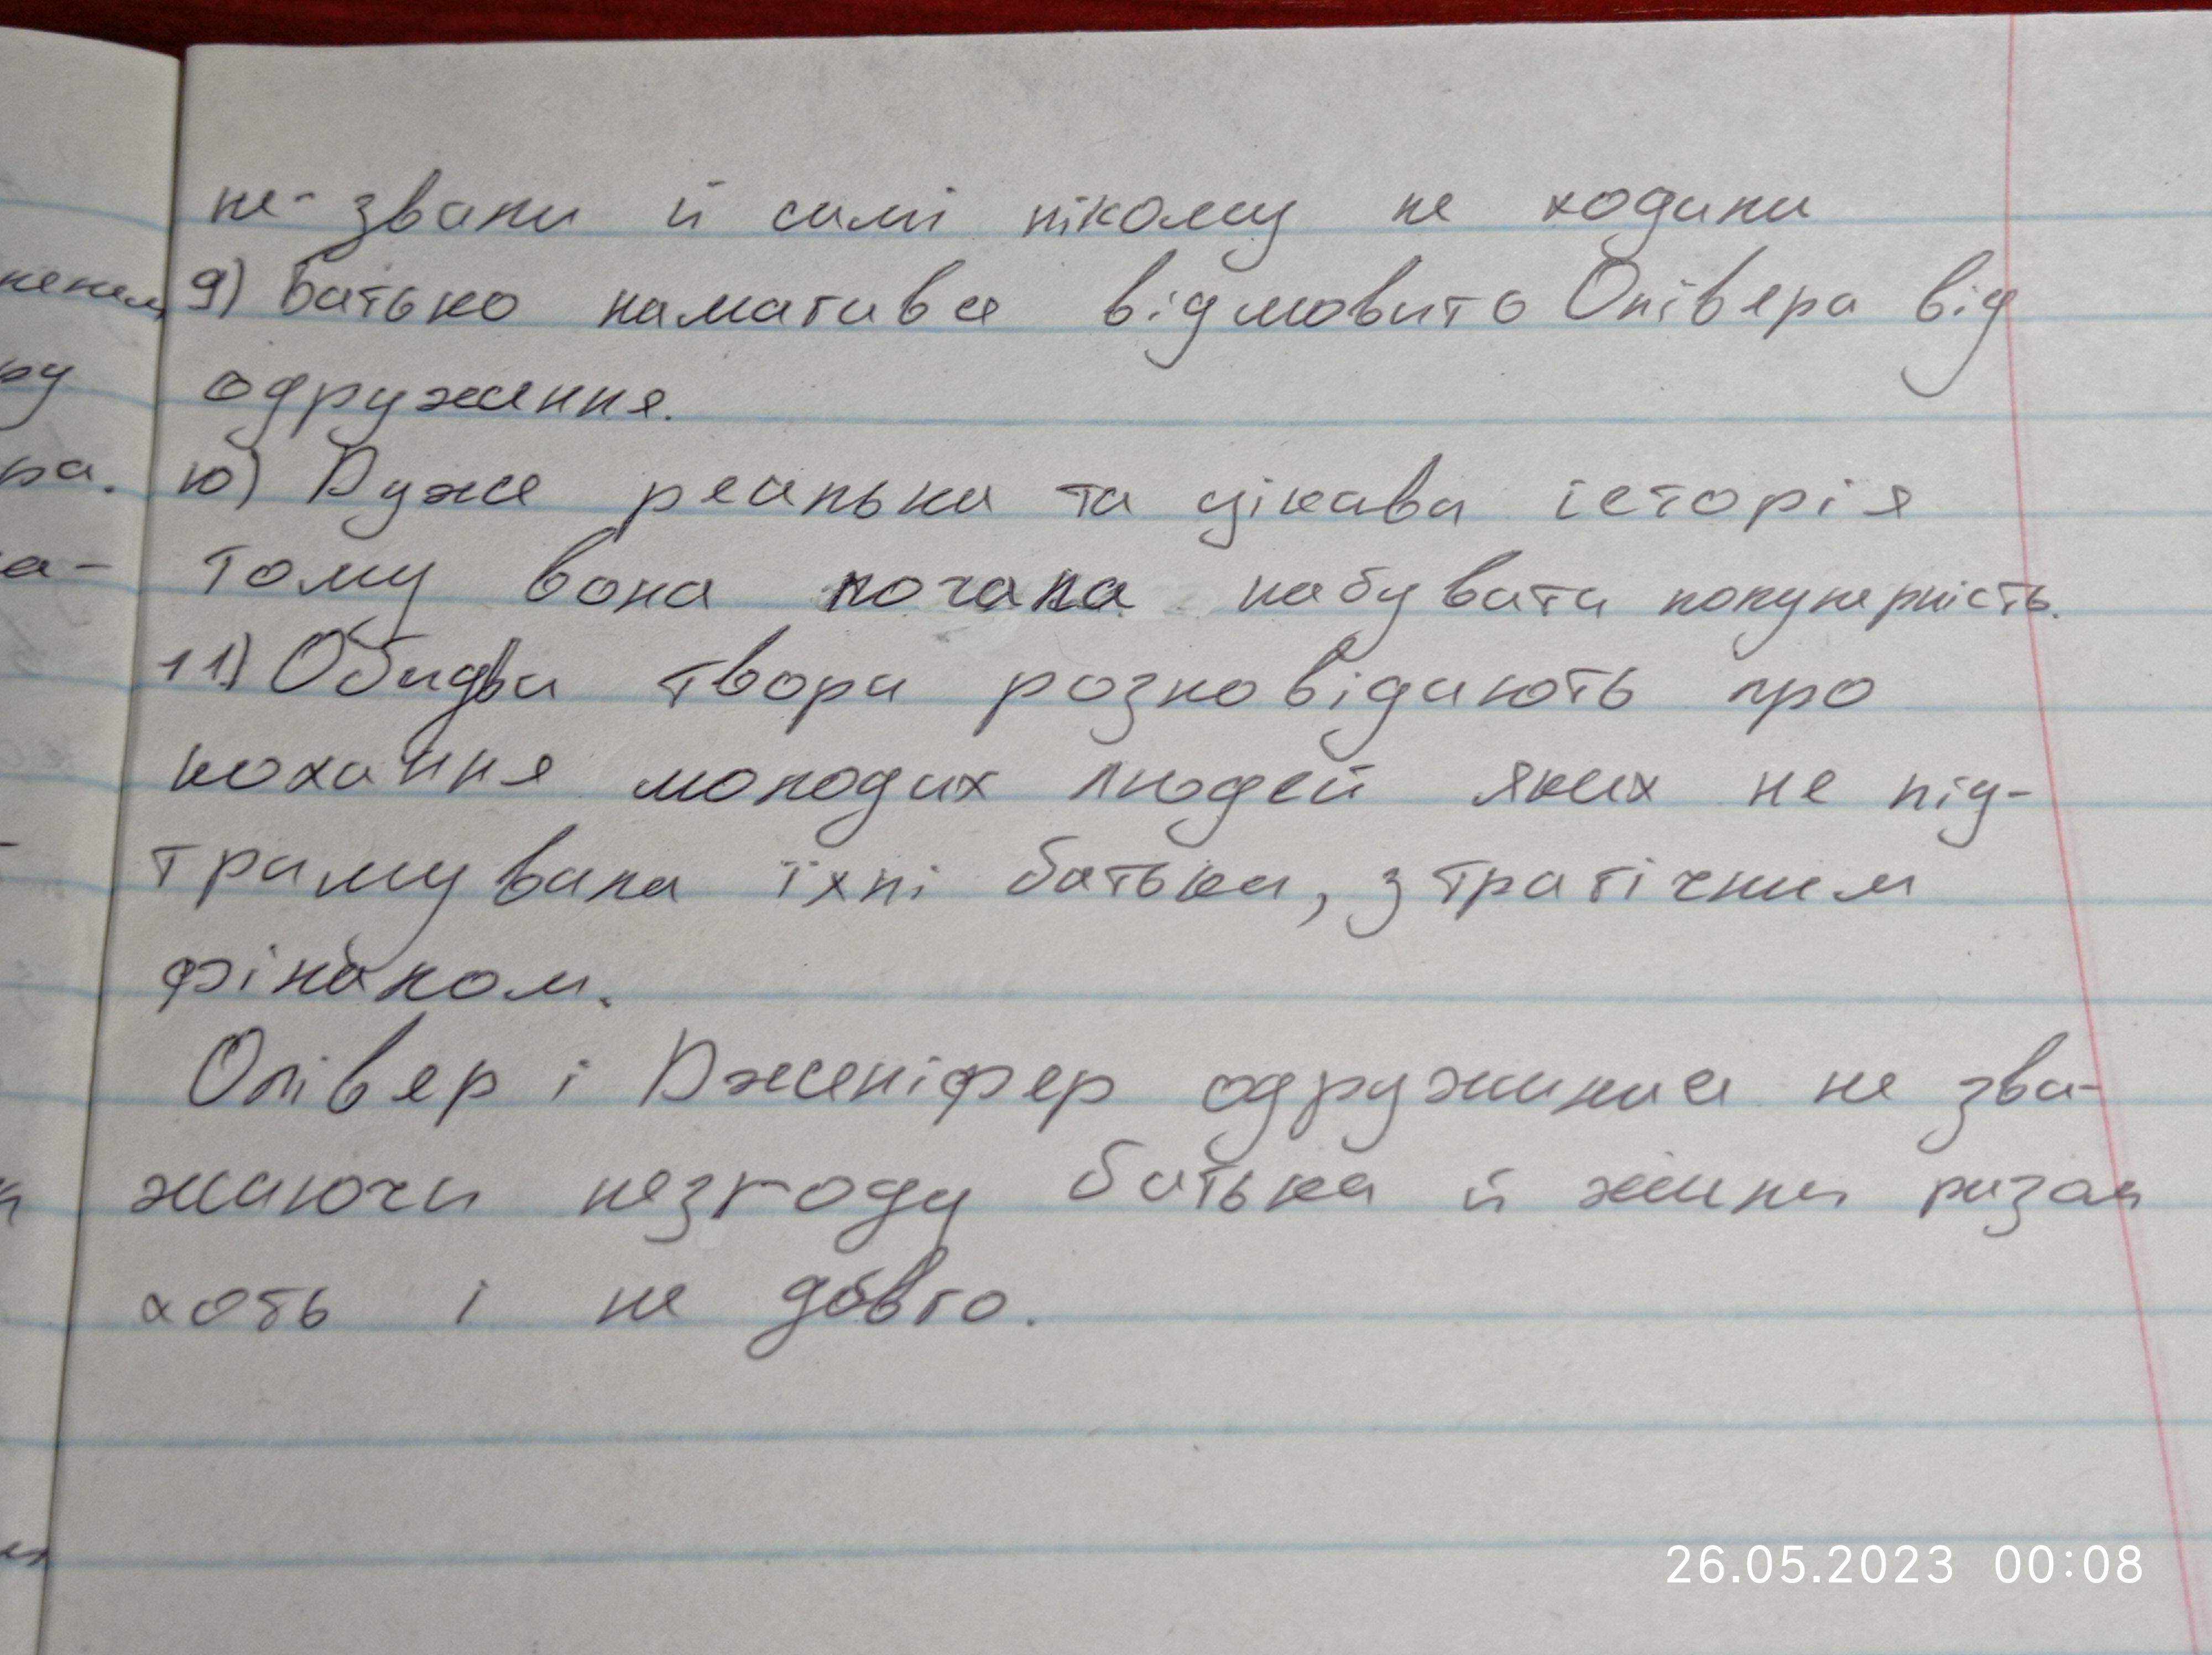 не звали й самі нікому не ходили
9) Батько намагався відмовито Олівера від
одруження.
10) Дуже реальна та цікава історія
тому вона почала набувати популярність.
11) Обидва твори розповідають про
кохання молодих людей яких не під-
тримувала їхні батьки, з трагічним
фіналом.
Олівер і Дженіфер одружилися не зва-
жаючи незгоду батька й жили разом
хоть і не довго.
26.05.2023 00:08